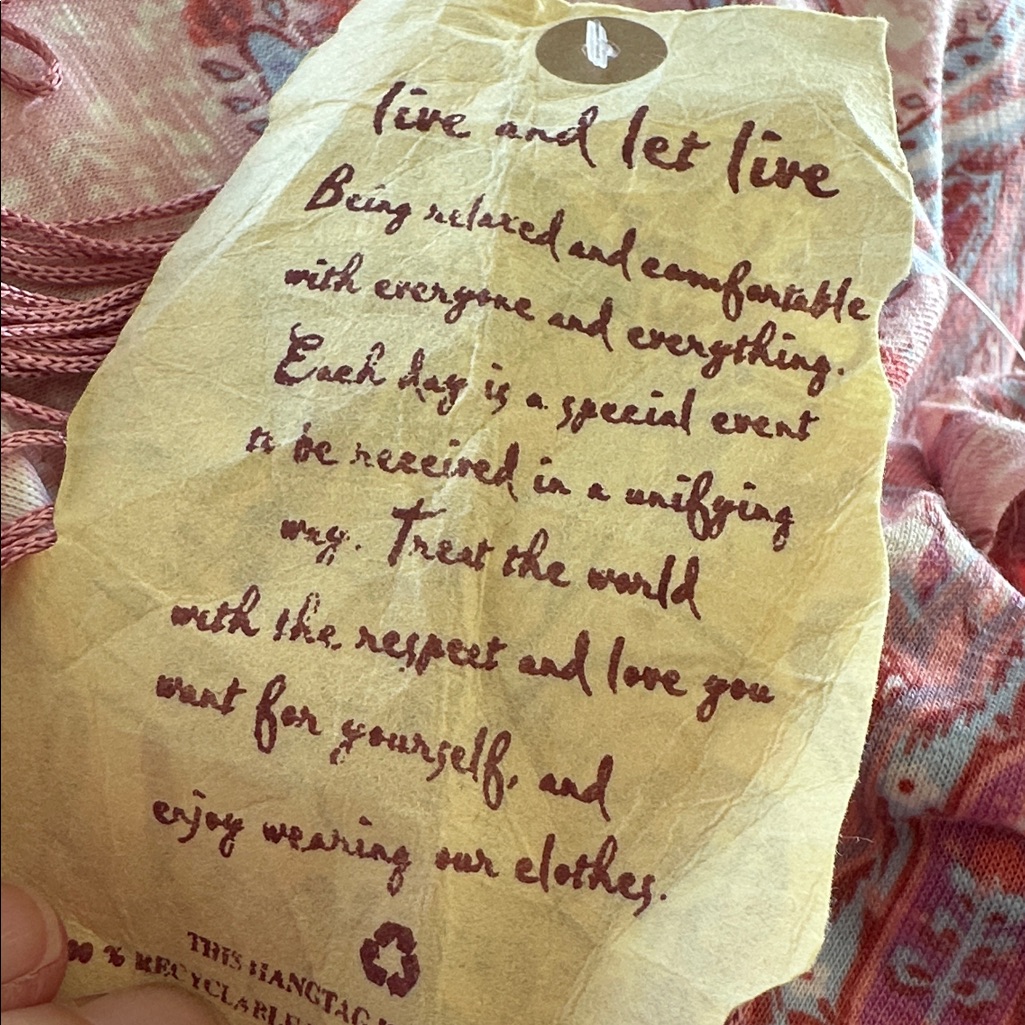 live and let live
Being relaxed and comfortable
with everyone and everything.
Each day is a special event
to be received in a unifying
way. Treat the world
with the respect and love you
want for yourself, and
enjoy wearing our clothes.
THIS HANGTAG
% RECYCLABLE